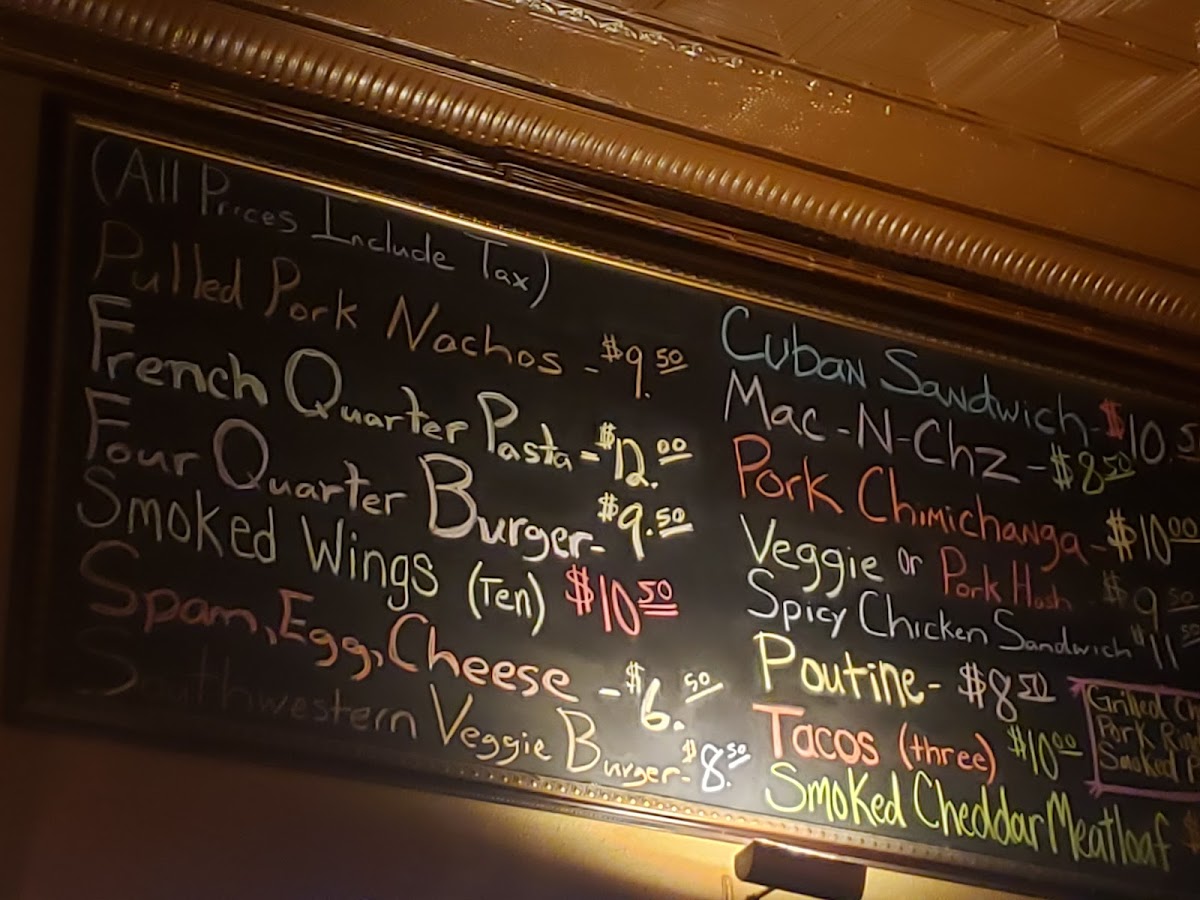 (All Prices Include Tax)
Pulled Pork Nachos - $9.50
French Quarter Pasta - $12.00
Four Quarter Burger - $9.50
Smoked Wings (Ten) $10.50
Spam, Egg, Cheese - $6.50
Southwestern Veggie Burger - $8.50
Cuban Sandwich - $10.5
Mac-N-Chz - $8.50
Pork Chimichanga - $10.00
Veggie or Pork Hash - $9.50
Spicy Chicken Sandwich $11
Poutine - $8.50
Tacos (three) $10.00
Smoked Cheddar Meatloaf $
Grilled
Pork
Smoked